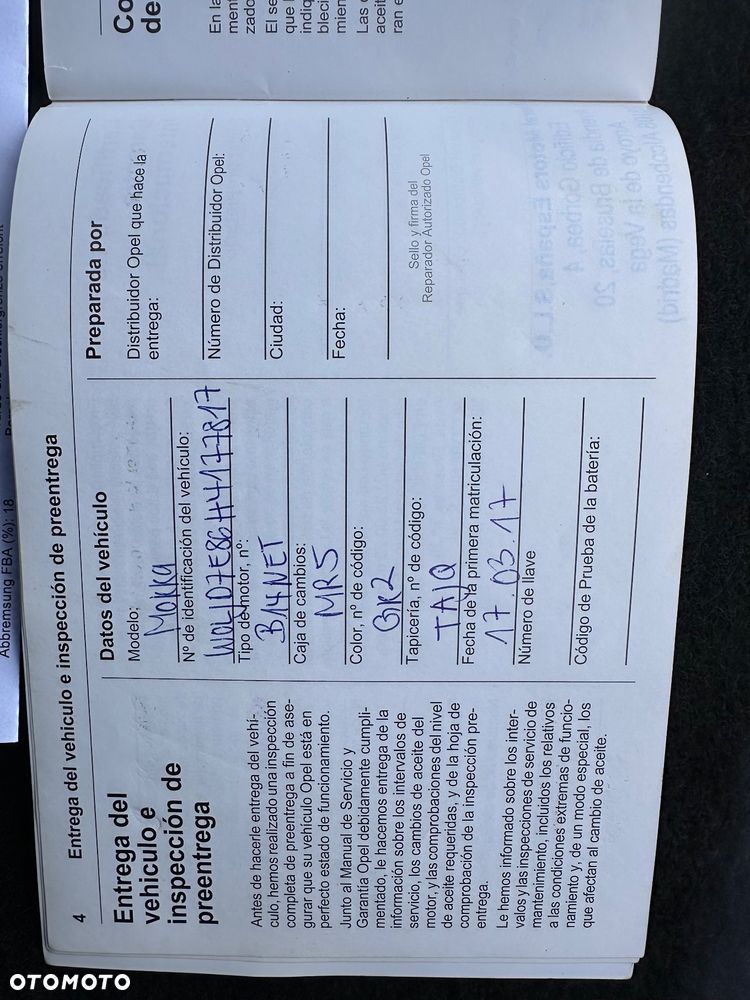 Co
de
En la
El se
4
Entrega del vehículo e inspección de preentrega
Entrega del
vehículo e
inspección de
preentrega
Antes de hacerle entrega del vehí-
culo, hemos realizado una inspección
completa de preentrega a fin de ase-
gurar que su vehículo Opel está en
perfecto estado de funcionamiento.
Junto al Manual de Servicio y
Garantía Opel debidamente cumpli-
mentado, le hacemos entrega de la
información sobre los intervalos de
servicio, los cambios de aceite del
motor, y las comprobaciones del nivel
de aceite requeridas, y de la hoja de
comprobación de la inspección pre-
entrega.
Le hemos informado sobre los inter-
valos y las inspecciones de servicio de
mantenimiento, incluidos los relativos
a las condiciones extremas de funcio-
namiento y, de un modo especial, los
que afectan al cambio de aceite.
Datos del vehículo
Modelo:
Mokka
Nº de identificación del vehículo:
W0LJD7E86H4177817
Tipo de motor, nº:
B14NET
Caja de cambios:
MR5
Color, nº de código:
GK2
Tapicería, nº de código:
TAJQ
Fecha de la primera matriculación:
17.03.17
Número de llave
Código de Prueba de la batería:
Preparada por
Distribuidor Opel que hace la
entrega:
Número de Distribuidor Opel:
Ciudad:
Fecha:
Sello y firma del
Reparador Autorizado Opel
Abbremsung FBA (%): 18
OTOMOTO